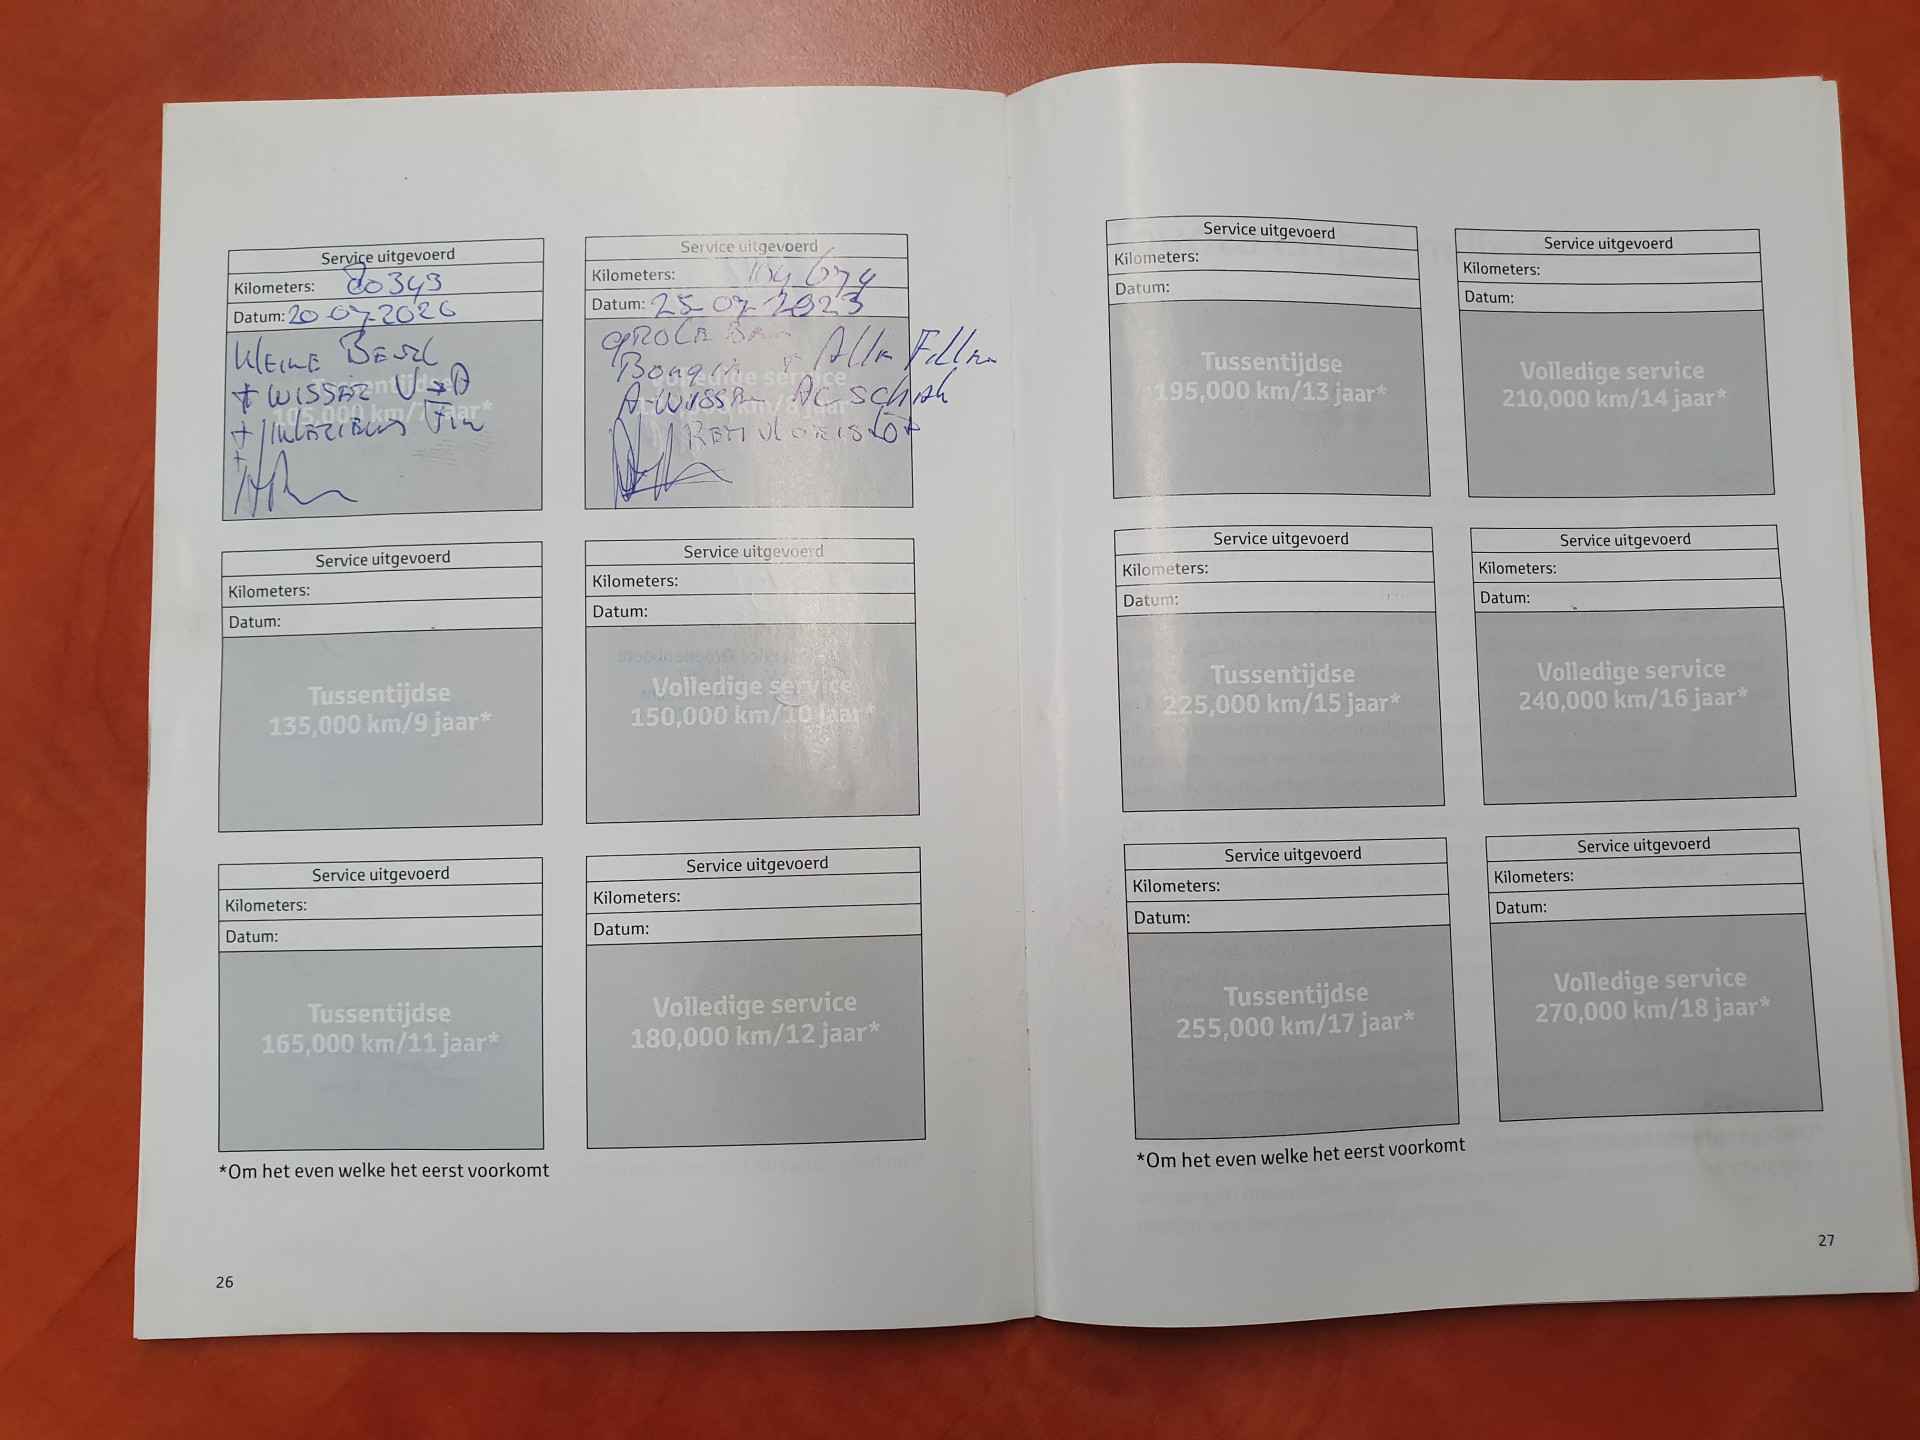 Service uitgevoerd
Kilometers: 80349
Datum: 20-07-2020
KLEINE
+ WISSER V+A
Tussentijdse
105,000 km/7 jaar*
+ INTERIEUR
+
Service uitgevoerd
Kilometers: 104674
Datum: 25-07-2023
GROTE
Bougie + Alle Filters
Volledige service
A-WISSER
km/8 jaar*
REMVLOEISTOF
Service uitgevoerd
Kilometers:
Datum:
Tussentijdse
135,000 km/9 jaar*
Service uitgevoerd
Kilometers:
Datum:
Volledige service
150,000 km/10 jaar*
Service uitgevoerd
Kilometers:
Datum:
Tussentijdse
165,000 km/11 jaar*
Service uitgevoerd
Kilometers:
Datum:
Volledige service
180,000 km/12 jaar*
*Om het even welke het eerst voorkomt
26
Service uitgevoerd
Kilometers:
Datum:
Tussentijdse
195,000 km/13 jaar*
Service uitgevoerd
Kilometers:
Datum:
Volledige service
210,000 km/14 jaar*
Service uitgevoerd
Kilometers:
Datum:
Tussentijdse
225,000 km/15 jaar*
Service uitgevoerd
Kilometers:
Datum:
Volledige service
240,000 km/16 jaar*
Service uitgevoerd
Kilometers:
Datum:
Tussentijdse
255,000 km/17 jaar*
Service uitgevoerd
Kilometers:
Datum:
Volledige service
270,000 km/18 jaar*
*Om het even welke het eerst voorkomt
27